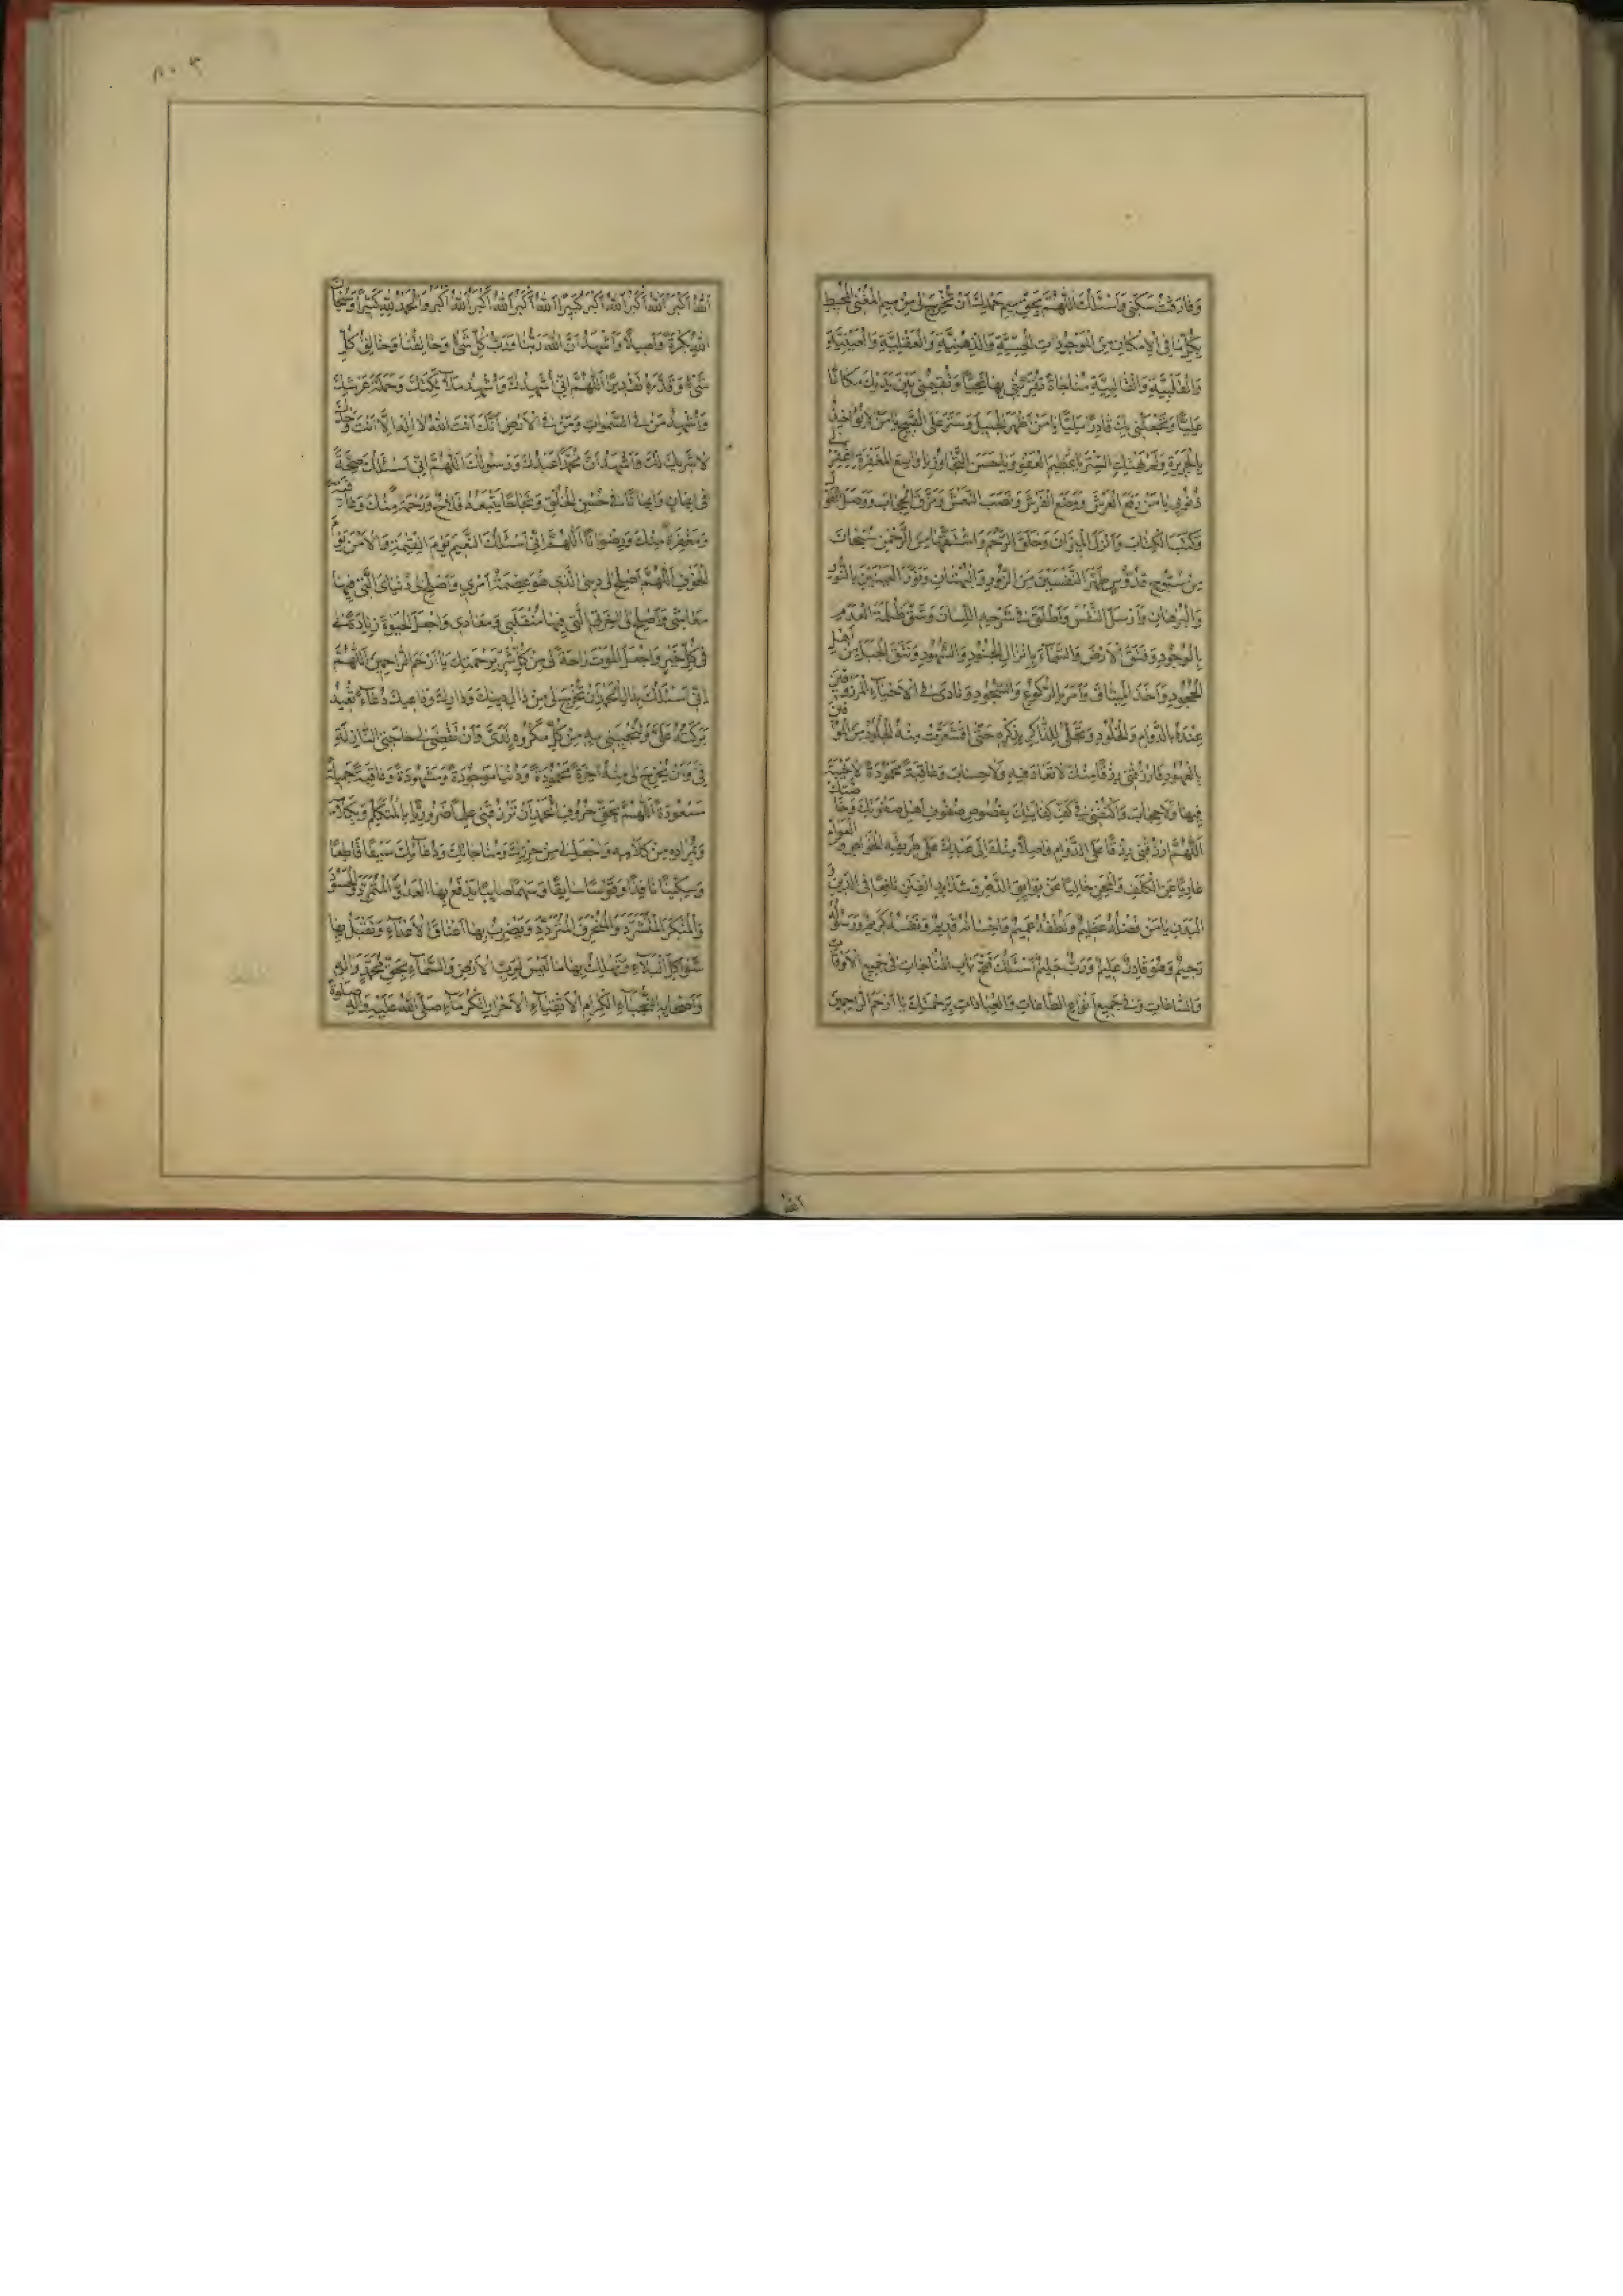 وَفَارَقْتُ سَكَنِي وَاَسْئَلُكَ اللّٰهُمَّ بِحَقِّ مِيمِ حَمْدِكَ اَنْ تُخْرِجَ لِي مِنْ مِيمِ الْمُغْنِي الْمُحِيطِ
بِكُلِّ مَا فِي الْاِمْكَانِ مِنَ الْمَوْجُودَاتِ الْحِسِّيَّةِ وَالذِّهْنِيَّةِ وَالْعَقْلِيَّةِ وَالْعَيْنِيَّةِ
وَالْقَلْبِيَّةِ وَالْقَالِبِيَّةِ مُنَاجَاةً تُقَرِّبُنِي بِهَا نَجِيًّا وَتُقِيمُنِي بَيْنَ يَدَيْكَ مَكَانًا
عَلِيًّا وَتَجْعَلُنِي بِكَ قَادِرًا مَلِيًّا يَا مَنْ اَظْهَرَ الْجَمِيلَ وَسَتَرَ عَلَى الْقَبِيحِ يَا مَنْ لَمْ يُؤَاخِذْ
بِالْجَرِيرَةِ وَلَمْ يَهْتِكِ السِّتْرَ يَا عَظِيمَ الْعَفْوِ وَيَا حَسَنَ التَّجَاوُزِ يَا وَاسِعَ الْمَغْفِرَةِ اِغْفِرْ لِي
ذُنُوبِي يَا مَنْ رَفَعَ الْعَرْشَ وَوَضَعَ الْفَرْشَ وَنَصَبَ النَّعْشَ وَمَزَّقَ الْحِجَابَ وَوَصَلَ
وَكَتَبَ الْكِتَابَ وَاَنْزَلَ الْمِيزَانَ وَخَلَقَ الرَّحِمَ وَاشْتَقَّهَا مِنَ الرَّحْمٰنِ سُبْحَانَكَ
مِنْ سُبُّوحٍ قُدُّوسٍ طَهَّرَ النَّفْسَيْنِ مِنَ الزُّورِ وَالْبُهْتَانِ وَنَوَّرَ الْعَيْنَيْنِ بِالنُّورِ
وَالْبُرْهَانِ وَاَرْسَلَ النَّفْسَ وَاَطْلَقَ اللِّسَانَ وَشَقَّ ظُلْمَةَ الْعَدَمِ
بِالْوُجُودِ وَفَتَقَ الْاَرْضَ وَالسَّمَاءَ بِاِنْزَالِ الْجُنُودِ وَالشُّهُودِ وَنَتَقَ الْجَبَلَ مِنْ اَهْلِ
الْجُحُودِ وَاَخَذَ الْمِيثَاقَ وَاَمَرَ بِالرُّكُوعِ وَالسُّجُودِ وَنَادَى فِي الْاَحْيَاءِ الْمَرْزُوقِينَ
عِنْدَهُ بِالدَّوَامِ وَالْخُلُودِ وَتَجَلَّى لِلذَّاكِرِ بِذِكْرِهِ حَتَّى اقْشَعَرَّتْ مِنْهُ الْجُلُودُ مِنَ الْمُوفِينَ
بِالْعُهُودِ فَارْزُقْنِي رِزْقًا مِنْكَ لَا نَفَادَ فِيهِ وَلَا حِسَابَ وَعَاقِبَةً مَحْمُودَةً لَا خَيْبَةَ
فِيهَا وَلَا حِجَابَ وَاكْنُفْنِي فِي كَهْفِ كِفَايَتِكَ بِخُصُوصِ صُفُوفِ اَهْلِ صَفْوَتِكَ وَخَاصَّتِكَ
اَللّٰهُمَّ ارْزُقْنِي رِزْقًا عَلَى الدَّوَامِ وَاصِلًا مِنْكَ اِلَى عَبْدِكَ عَلَى طَرِيقَةِ الْخَوَاصِّ وَالْعَوَامِ
عَارِيًا عَنِ الْكُلَفِ وَالْمِحَنِ خَالِيًا عَنْ بَوَائِقِ الدَّهْرِ وَشَدَائِدِ الْفِتَنِ نَافِعًا فِي الدِّينِ
يَا مَنْ فَضْلُهُ عَظِيمٌ وَلُطْفُهُ عَمِيمٌ وَاِحْسَانُهُ قَدِيمٌ وَنَفْسُهُ كَرِيمٌ وَرَسُولُهُ
رَحِيمٌ وَهُوَ قَادِرٌ عَلِيمٌ وَرَبٌّ حَلِيمٌ اَسْئَلُكَ فَتْحَ بَابِ الْمُنَاجَاتِ فِي جَمِيعِ الْاَوْقَاتِ
وَالسَّاعَاتِ وَفِي جَمِيعِ اَنْوَاعِ الطَّاعَاتِ وَالْعِبَادَاتِ بِرَحْمَتِكَ يَا اَرْحَمَ الرَّاحِمِينَ
اَللّٰهُ
اَللّٰهُ اَكْبَرُ اَللّٰهُ اَكْبَرُ اَللّٰهُ اَكْبَرُ كَبِيرًا اَللّٰهُ اَكْبَرُ اَللّٰهُ اَكْبَرُ اَللّٰهُ اَكْبَرُ وَالْحَمْدُ لِلّٰهِ كَثِيرًا وَسُبْحَانَ
اللّٰهِ بُكْرَةً وَاَصِيلًا وَاَشْهَدُ اَنَّ اللّٰهَ رَبُّنَا وَرَبُّ كُلِّ شَيْءٍ وَخَالِقُنَا وَخَالِقُ كُلِّ
شَيْءٍ وَقَدَّرَهُ تَقْدِيرًا اَللّٰهُمَّ اِنِّي اُشْهِدُكَ وَاُشْهِدُ مَلَائِكَتَكَ وَحَمَلَةَ عَرْشِكَ
وَاُشْهِدُ مَنْ فِي السَّمٰوَاتِ وَمَنْ فِي الْاَرْضِ اَنَّكَ اَنْتَ اللّٰهُ لَا اِلٰهَ اِلَّا اَنْتَ وَحْدَكَ
لَا شَرِيكَ لَكَ وَاَشْهَدُ اَنَّ مُحَمَّدًا عَبْدُكَ وَرَسُولُكَ اَللّٰهُمَّ اِنِّي اَسْئَلُكَ صِحَّةً
فِي اِيمَانٍ وَاِيمَانًا فِي حُسْنِ الْخُلُقِ وَنَجَاحًا يَتْبَعُهُ فَلَاحٌ وَرَحْمَةً مِنْكَ وَعَافِيَةً
وَمَغْفِرَةً مِنْكَ وَرِضْوَانًا اَللّٰهُمَّ اِنِّي اَسْئَلُكَ النَّعِيمَ يَوْمَ الْقِيٰمَةِ وَالْاَمْنَ يَوْمَ
الْخَوْفِ اَللّٰهُمَّ اَصْلِحْ لِي دِينِيَ الَّذِي هُوَ عِصْمَةُ اَمْرِي وَاَصْلِحْ لِي دُنْيَايَ الَّتِي فِيهَا
مَعَاشِي وَاَصْلِحْ لِي اٰخِرَتِيَ الَّتِي فِيهَا مُنْقَلَبِي وَمَعَادِي وَاجْعَلِ الْحَيٰوةَ زِيَادَةً لِي
فِي كُلِّ خَيْرٍ وَاجْعَلِ الْمَوْتَ رَاحَةً لِي مِنْ كُلِّ شَرٍّ بِرَحْمَتِكَ يَا اَرْحَمَ الرَّاحِمِينَ اَللّٰهُمَّ
اِنِّي اَسْئَلُكَ بِدَالِ الْحَمْدِ اَنْ تُخْرِجَ لِي مِنْ دَالِ دُعَاءً تُعِيدُ
بَرَكَتَهُ عَلَيَّ وَتُنْجِيَنِي بِهِ مِنْ كُلِّ مَكْرُوهٍ لَدَيَّ وَاَنْ تَقْضِيَ لِي حَاجَتِيَ النَّازِلَةَ
بِي وَاَنْ تُخْرِجَ لِي مِنْهُ اٰخِرَةً مَحْمُودَةً وَدُنْيَا مَوْجُودَةً وَمَشْهُودَةً وَعَاقِبَةً جَمِيلَةً
مَسْعُودَةً اَللّٰهُمَّ بِحَقِّ حُرُوفِ الْحَمْدِ اَنْ تَرْزُقَنِي عِلْمًا ضَرُورِيًّا بِالْمُتَكَلِّمِ وَبِكَلَامِهِ
وَبِمُرَادِهِ مِنْ كَلَامِهِ وَاجْعَلْ لِي مِنْ حِرْزِكَ وَمُنَاجَاتِكَ وَدُعَائِكَ سَيْفًا قَاطِعًا
وَسِكِّينًا نَافِذًا وَقَوْسًا سَابِقًا وَسَهْمًا صَائِبًا تَدْفَعُ بِهَا الْعَدُوَّ الْمُتَمَرِّدَ وَالْحَسُودَ
وَالْمُنْكِرَ الْمُتَشَرِّدَ وَتَضْرِبُ بِهَا اَعْنَاقَ الْاَعْدَاءِ وَتَقْتُلُ بِهَا
الْبَلَاءِ وَتُهْلِكُ بِهَا مَا لَيْسَ لِرَبِّ الْاَرْضِ وَالسَّمَاءِ بِحَقِّ مُحَمَّدٍ وَاٰلِهِ
وَاَصْحَابِهِ النُّجَبَاءِ الْكِرَامِ الْاَتْقِيَاءِ الْاَخْيَارِ الْكُرَمَاءِ صَلَّى اللّٰهُ عَلَيْهِ وَاٰلِهِ صَلٰوةً